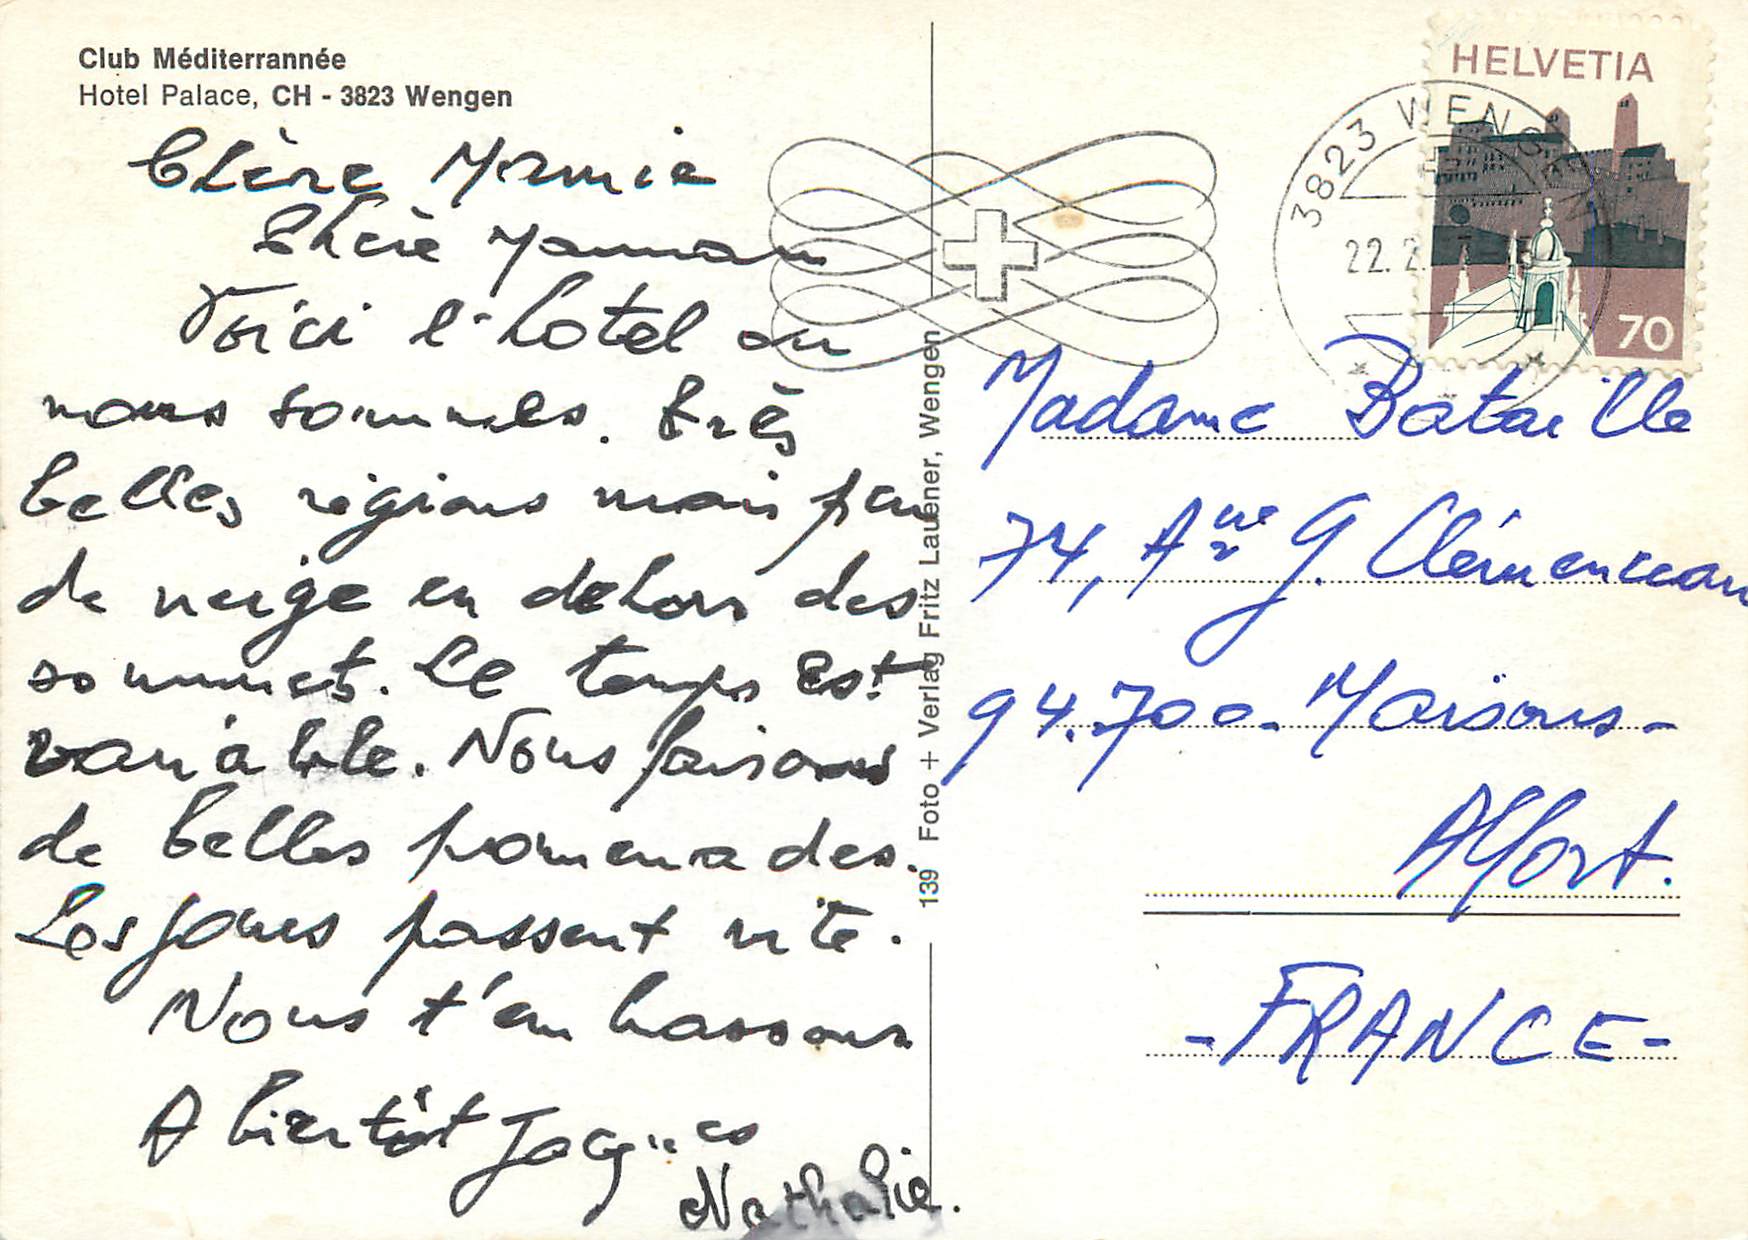 Club Méditerrannée
Hotel Palace, CH - 3823 Wengen
Chère Mamie
Chère Maman
Voici l'hotel ou
nous sommes. Très
belles régions mais peu
de neige en dehors des
sommets. Le temps est
variable. Nous faisons
de belles promenades.
Les jours passent vite.
Nous t'embrassons
A bientôt Jacques
Nathalie.
139 Foto + Verlag Fritz Lauener, Wengen
HELVETIA
70
3823 WENGEN
22.2.
Madame Bataille
74, Avue G. Clémenceau
94.700. Maisons-
Alfort.
-FRANCE-